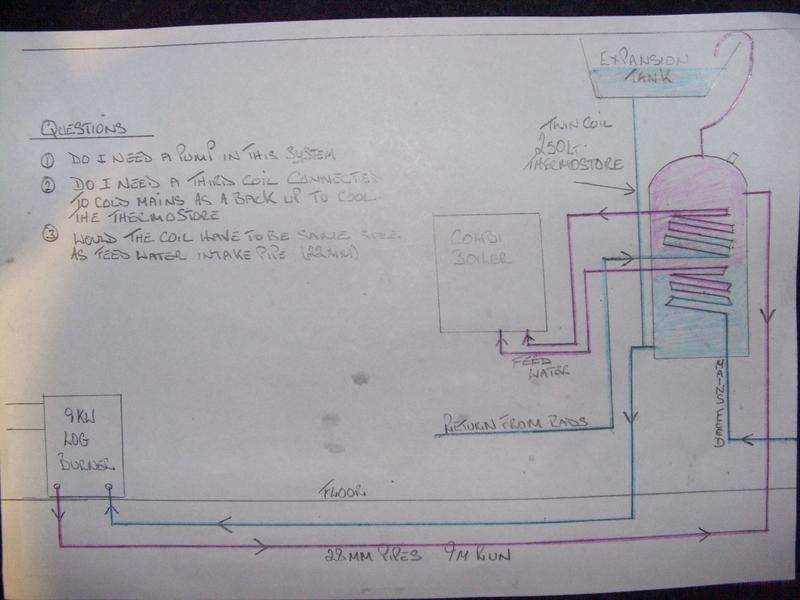 QUESTIONS
① DO I NEED A PUMP IN THIS SYSTEM
② DO I NEED A THIRD COIL CONNECTED
TO COLD MAINS AS A BACK UP TO COOL
THE THERMOSTORE
③ WOULD THE COIL HAVE TO BE SAME SIZE
AS FEED WATER INTAKE PIPE (22MM)
EXPANSION
TANK
TWIN COIL
250LT.
THERMOSTORE
COMBI
BOILER
FEED
WATER
MAINS FEED
RETURN FROM RADS
9KW
LOG
BURNER
FLOOR
28MM PIPES 9M RUN